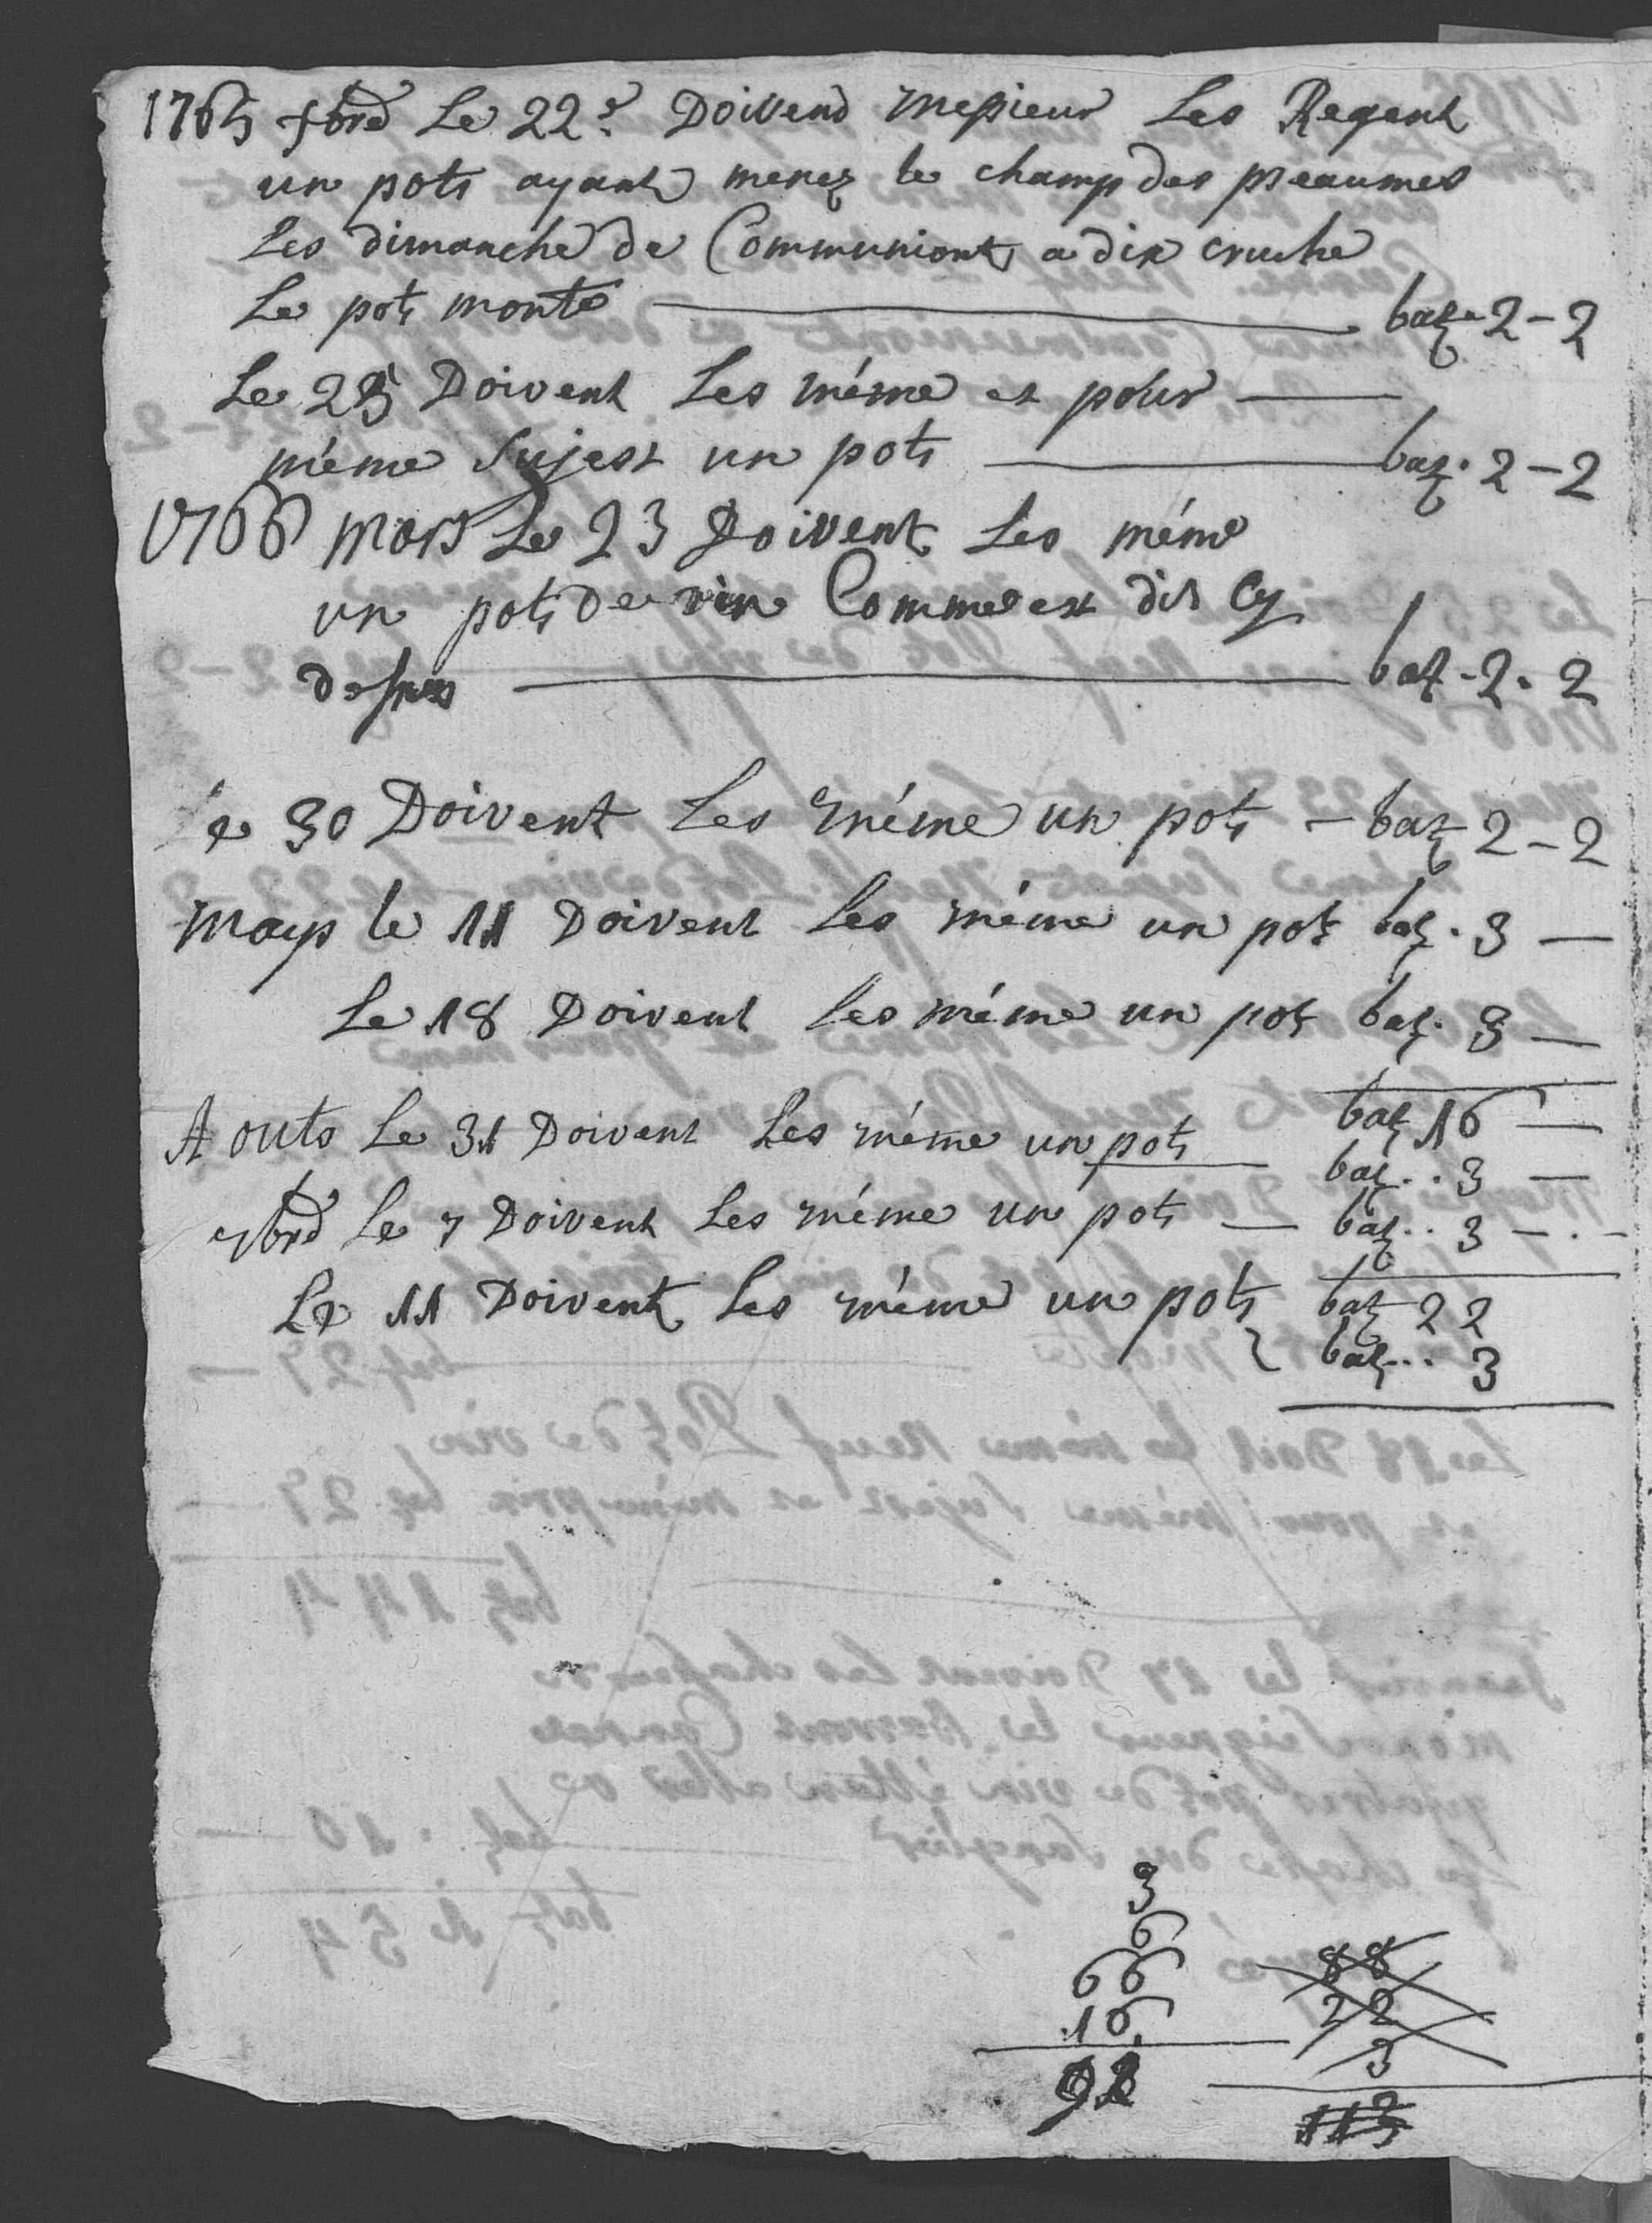 1765 xbre Le 22e Doivend messieur Les Regent
un pots ayant menez le champ des pseaumes
Les dimanche de Communiont a dix cruche
Le pots monte baz 2-2
Le 25 Doivent Les méme et pour
méme Sujest un pots baz. 2-2
1766 mars Le 23 Doivent Les méme
un pots de vin Comme est dit Cy
dessus baz - 2. 2
Le 30 Doivent Les méme un pots - baz 2-2
mays le 11 Doivent Les méme un potz baz. 3 —
Le 18 Doivent les méme un potz baz. 3 —
baz 16 —
A outs Le 31 Doivent Les méme un pots baz.. 3 —
7bre Le 7 Doivent Les méme un pots — baz.. 3 -.-
baz 22
Le 11 Doivent Les méme un pots baz... 3
3
6
66
16
92
88
22
3
113